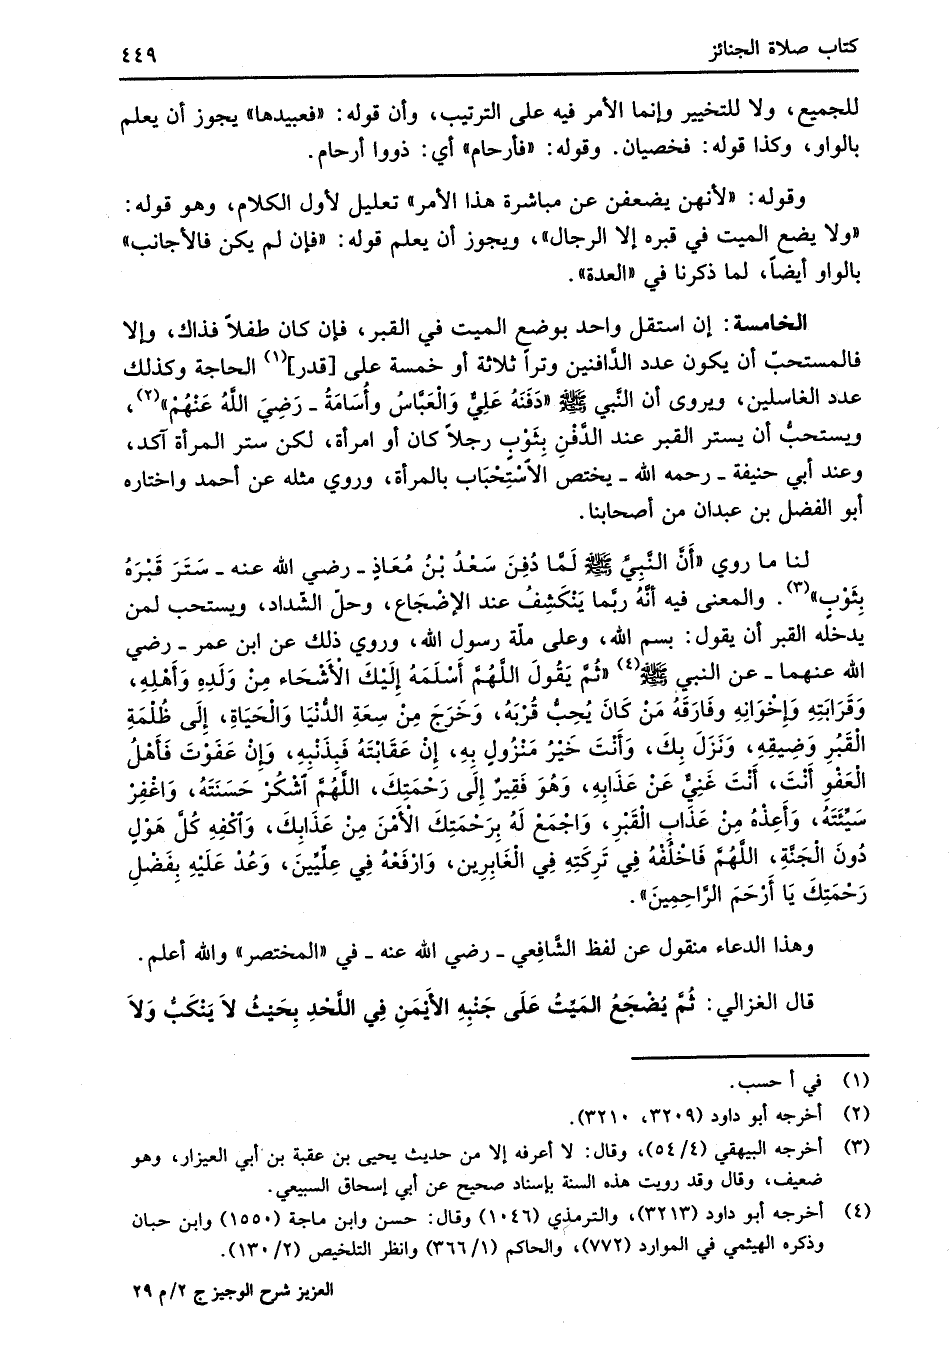 كتاب صلاة الجنائز
٤٤٩
للجميع، ولا للتخيير وإنما الأمر فيه على الترتيب، وأن قوله: «فعبيدها» يجوز أن يعلم
بالواو، وكذا قوله: فخصيان. وقوله: «فأرحام» أي: ذووا أرحام.
وقوله: «لأنهن يضعفن عن مباشرة هذا الأمر» تعليل لأول الكلام، وهو قوله:
«ولا يضع الميت في قبره إلا الرجال»، ويجوز أن يعلم قوله: «فإن لم يكن فالأجانب»
بالواو أيضاً، لما ذكرنا في «العدة».
الخامسة: إن استقل واحد بوضع الميت في القبر، فإن كان طفلاً فذاك، وإلا
فالمستحبّ أن يكون عدد الدَّافنين وتراً ثلاثة أو خمسة على [قدر](١) الحاجة وكذلك
عدد الغاسلين، ويروى أن النَّبي ﷺ «دَفَنَهُ عَلِيٌّ وَالْعَبَّاسُ وأُسَامَةُ ـ رَضِيَ اللَّهُ عَنْهُمْ»(٢)،
ويستحبُّ أن يستر القبر عند الدَّفْنِ بِثَوْبٍ رجلاً كان أو امرأة، لكن ستر المرأة آكد،
وعند أبي حنيفة ـ رحمه الله ـ يختص الاسْتِحْبَاب بالمرأة، وروي مثله عن أحمد واختاره
أبو الفضل بن عبدان من أصحابنا.
لنا ما روي «أَنَّ النَّبِيَّ ﷺ لَمَّا دُفِنَ سَعْدُ بْنُ مُعَاذٍ ـ رضي الله عنه ـ سَتَرَ قَبْرَهُ
بِثَوْبٍ»(٣). والمعنى فيه أنَّهُ ربَّما يَنْكَشِفُ عند الإضْجَاع، وحلّ الشّداد، ويستحب لمن
يدخله القبر أن يقول: بسم الله، وعلى ملّة رسول الله، وروي ذلك عن ابن عمر ـ رضي
الله عنهما ـ عن النبي ﷺ(٤) «ثُمَّ يَقُولَ اللَّهُمَّ أَسْلَمَهُ إِلَيْكَ الْأَشْحَاء مِنْ وَلَدِهِ وَأَهْلِهِ،
وَقَرَابَتِهِ وَإِخْوَانِهِ وفَارَقَهُ مَنْ كَانَ يُحِبُّ قُرْبَهُ، وَخَرَجَ مِنْ سِعَةِ الدُّنْيَا وَالْحَيَاةِ، إِلَى ظُلْمَةِ
الْقَبْرِ وَضِيقِهِ، وَنَزَلَ بِكَ، وَأَنْتَ خَيْرُ مَنْزُولٍ بِهِ، إِنْ عَقَابْتَهُ فَبِذَنْبِهِ، وَإِنْ عَفَوْتَ فَأَهْلُ
الْعَفْوِ أَنْتَ، أَنْتَ غَنِيٌّ عَنْ عَذَابِهِ، وَهُوَ فَقِيرٌ إِلَى رَحْمَتِكَ، اللَّهُمَّ اَشْكُرْ حَسَنَتَهُ، وَاغْفِرْ
سَيِّئَتَهُ، وَأَعِذْهُ مِنْ عَذَابِ الْقَبْرِ، وَاجْمَعْ لَهُ بِرَحْمَتِكَ الْأَمْنَ مِنْ عَذَابِكَ، وَاَكْفِهِ كُلَّ هَوْلٍ
دُونَ الْجَنَّةِ، اللَّهُمَّ فَاخْلُفْهُ فِي تَرِكَتِهِ فِي الْغَابِرِينِ، وَارْفَعْهُ فِي عِلِّيِّينَ، وَعُدْ عَلَيْهِ بِفَضْلِ
رَحْمَتِكَ يَا أَرْحَمَ الرَّاحِمِينَ».
وهذا الدعاء منقول عن لفظ الشَّافِعي ـ رضي الله عنه ـ في «المختصر» والله أعلم.
قال الغزالي: ثُمَّ يُضْجَعُ المَيِّتُ عَلَى جَنْبِهِ الأَيْمَنِ فِي اللَّحْدِ بِحَيْثُ لاَ يَنْكَبُّ وَلاَ
(١) في أ حسب.
(٢) أخرجه أبو داود (٣٢٠٩، ٣٢١٠).
(٣) أخرجه البيهقي (٤/ ٥٤)، وقال: لا أعرفه إلا من حديث يحيى بن عقبة بن أبي العيزار، وهو
ضعيف، وقال وقد رويت هذه السنة بإسناد صحيح عن أبي إسحاق السبيعي.
(٤) أخرجه أبو داود (٣٢١٣)، والترمذي (١٠٤٦) وقال: حسن وابن ماجة (١٥٥٠) وابن حبان
وذكره الهيثمي في الموارد (٧٧٢)، والحاكم (١/ ٣٦٦) وانظر التلخيص (٢/ ١٣٠).
العزيز شرح الوجيز ج ٢/ م ٢٩